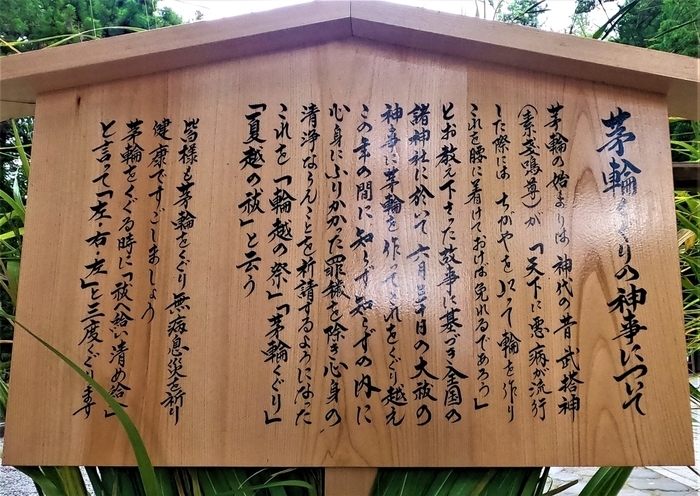 茅輪くぐりの神事について
茅輪の始まりは 神代の昔 武塔神
(素戔嗚尊)が 「天下に悪病が流行
した際には ちがやを以って輪を作り
これを腰に着けておけば免れるであろう」
とお教え下さった故事に基づき全国の
諸神社に於いて 六月三十日の大祓の
神事に茅輪を作ってこれをくぐり越え
この年の間に知らず知らずの内に
心身にふりかかった罪穢を除き心身の
清浄ならんことを祈請するようになった
これを「輪越の祭」「茅輪くぐり」
「夏越の祓」と云う
皆様も茅輪をくぐり無病息災を祈り
健康ですごしましょう
茅輪をくぐる時に「祓へ給い清め給へ」
と言って「左・右・左」と三度くぐります